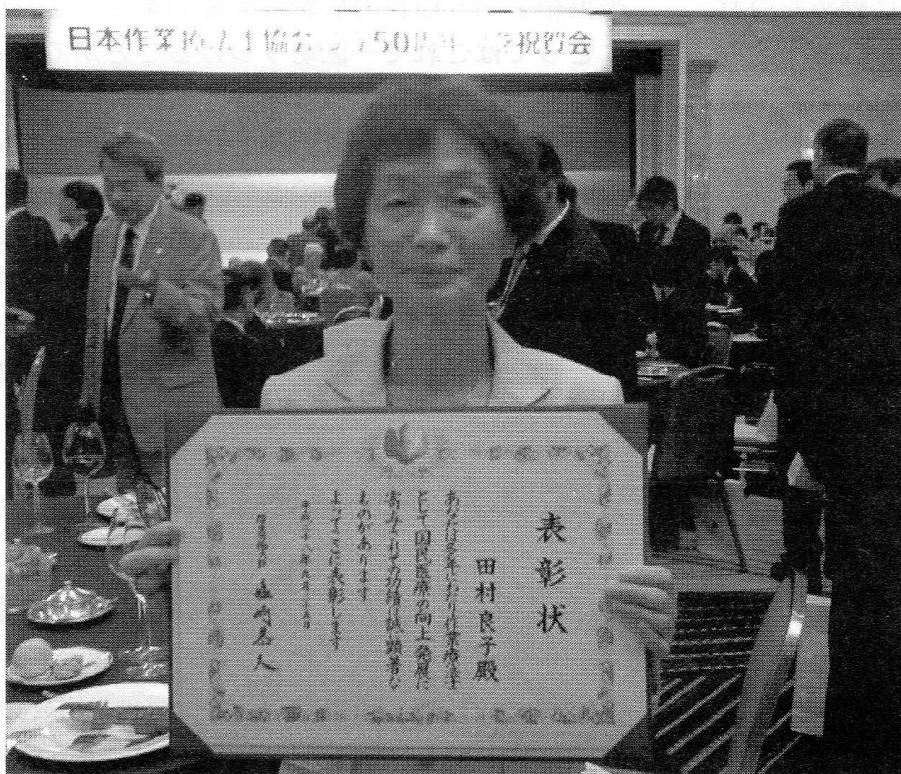 日本作業療法士協会 50周年 祝賀会
表彰状
田村良子殿
あなたは多年にわたり作業療法士
として国民医療の向上発展に
寄与されその功績は誠に顕著な
ものがあります
よってここに表彰します
平成二十八年九月二十五日
厚生労働大臣 塩崎恭久